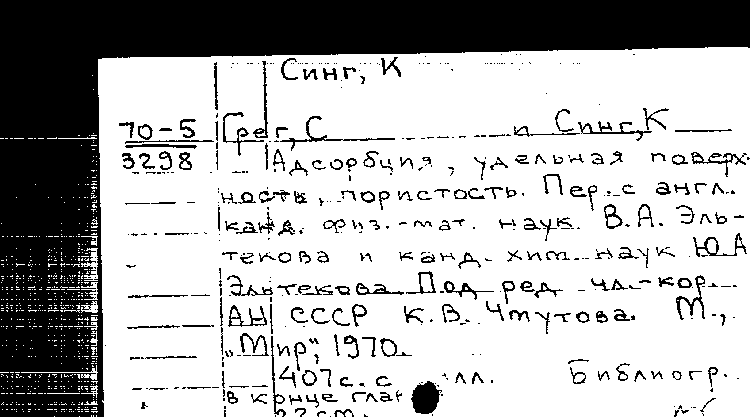 Синг, К
70-5 Грег, С и Синг, К
3298 Адсорбция, удельная поверх-
ность, пористость. Пер. с англ.
канд. физ.-мат. наук. В.А. Эль-
текова и канд. хим. наук Ю.А
Эльтекова. Под ред чл.-кор.
АН СССР К.В. Чмутова. М.,
„Мир", 1970.
407 с. с илл. Библиогр.
в конце глав
22 см.